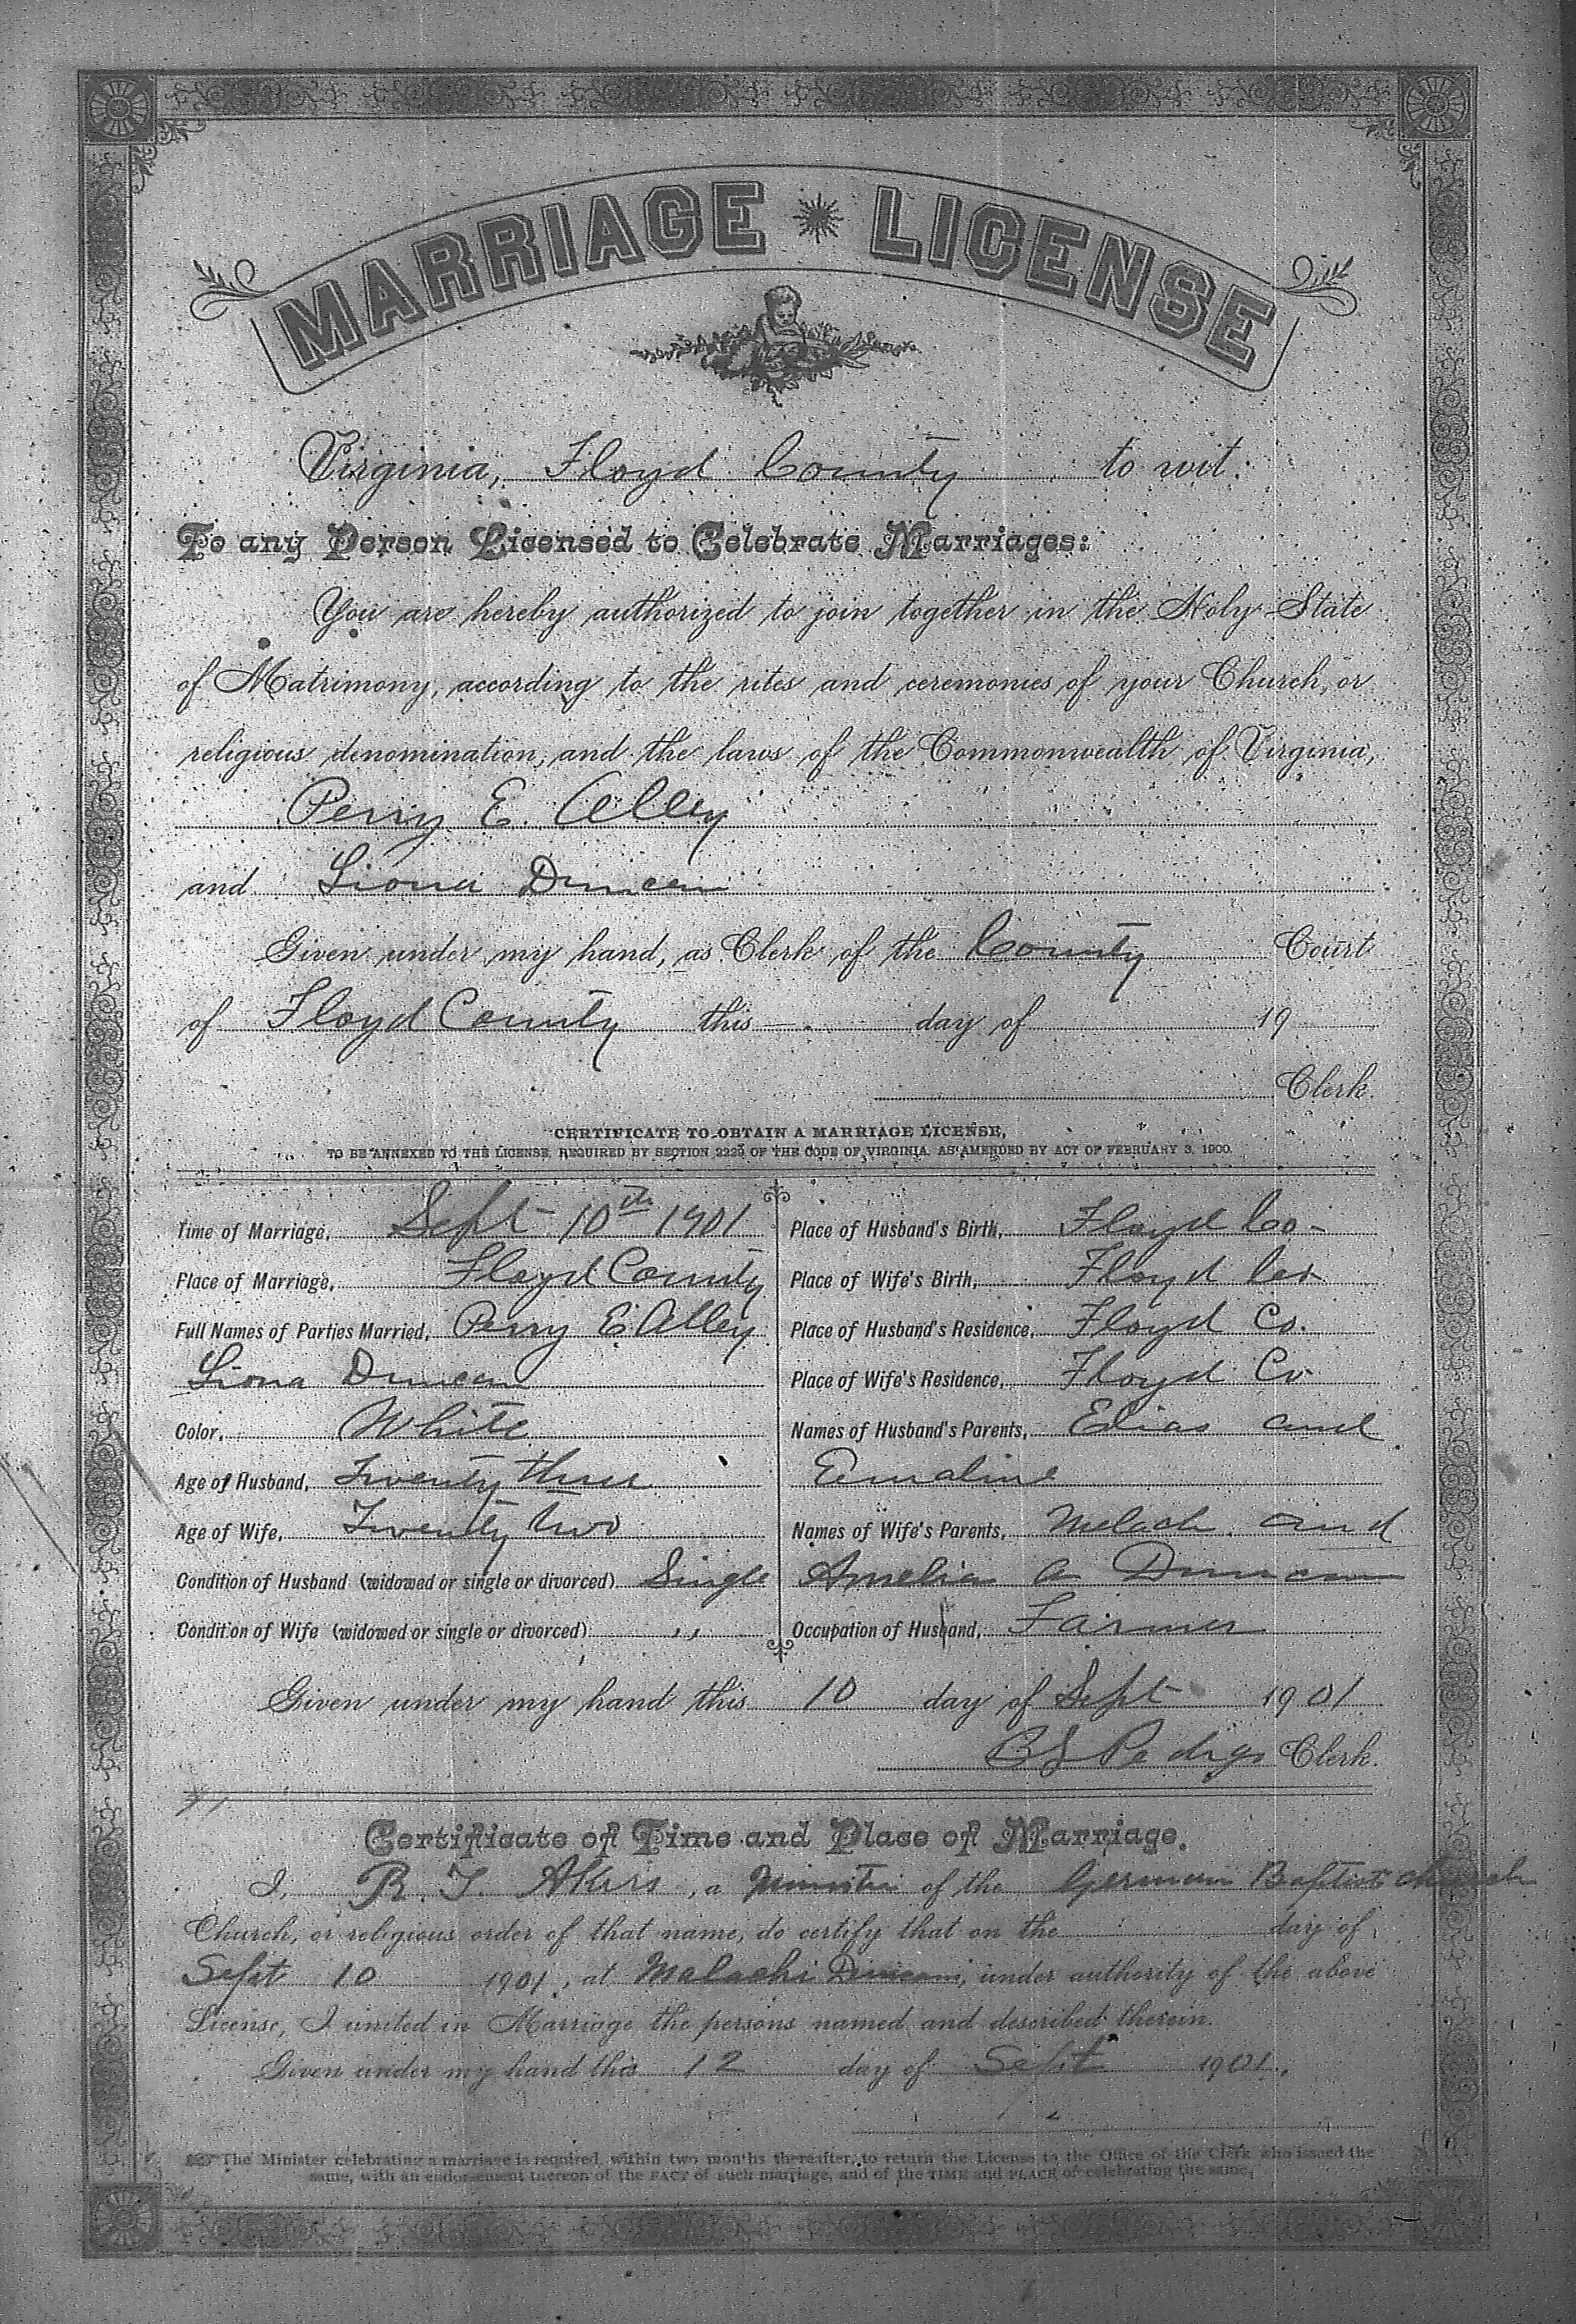 MARRIAGE LICENSE
Virginia, Floyd County to wit:
To any Person Licensed to Celebrate Marriages:
You are hereby authorized to join together in the Holy State
of Matrimony, according to the rites and ceremonies of your Church, or
religious denomination, and the laws of the Commonwealth of Virginia,
Perry E. Alley
and Liona Duncan
Given under my hand, as Clerk of the County Court
of Floyd County this — day of 19
Clerk.
CERTIFICATE TO OBTAIN A MARRIAGE LICENSE,
TO BE ANNEXED TO THE LICENSE, REQUIRED BY SECTION 2229 OF THE CODE OF VIRGINIA, AS AMENDED BY ACT OF FEBRUARY 3, 1900.
Time of Marriage, Sept 10th 1901
Place of Marriage, Floyd County
Full Names of Parties Married, Perry E Alley
Liona Duncan
Color, White
Age of Husband, Twenty three
Age of Wife, Twenty two
Condition of Husband (widowed or single or divorced) Single
Condition of Wife (widowed or single or divorced) "
Place of Husband's Birth, Floyd Co-
Place of Wife's Birth, Floyd Co
Place of Husband's Residence, Floyd Co.
Place of Wife's Residence, Floyd Co
Names of Husband's Parents, Elias and
Emaline
Names of Wife's Parents, Melach. and
Amelia A Duncan
Occupation of Husband, Farmer
Given under my hand this 10 day of Sept 1901
Pedigo Clerk.
Certificate of Time and Place of Marriage.
I, R. T. Akers, a Minister of the German Baptist church
Church, or religious order of that name, do certify that on the day of
Sept 10 1901, at Malachi Duncan, under authority of the above
License, I united in Marriage the persons named and described therein.
Given under my hand this 12 day of Sept 1901.
The Minister celebrating a marriage is required, within two months thereafter, to return the License to the Office of the Clerk who issued the
same, with an endorsement thereon of the FACT of such marriage, and of the TIME and PLACE of celebrating the same.